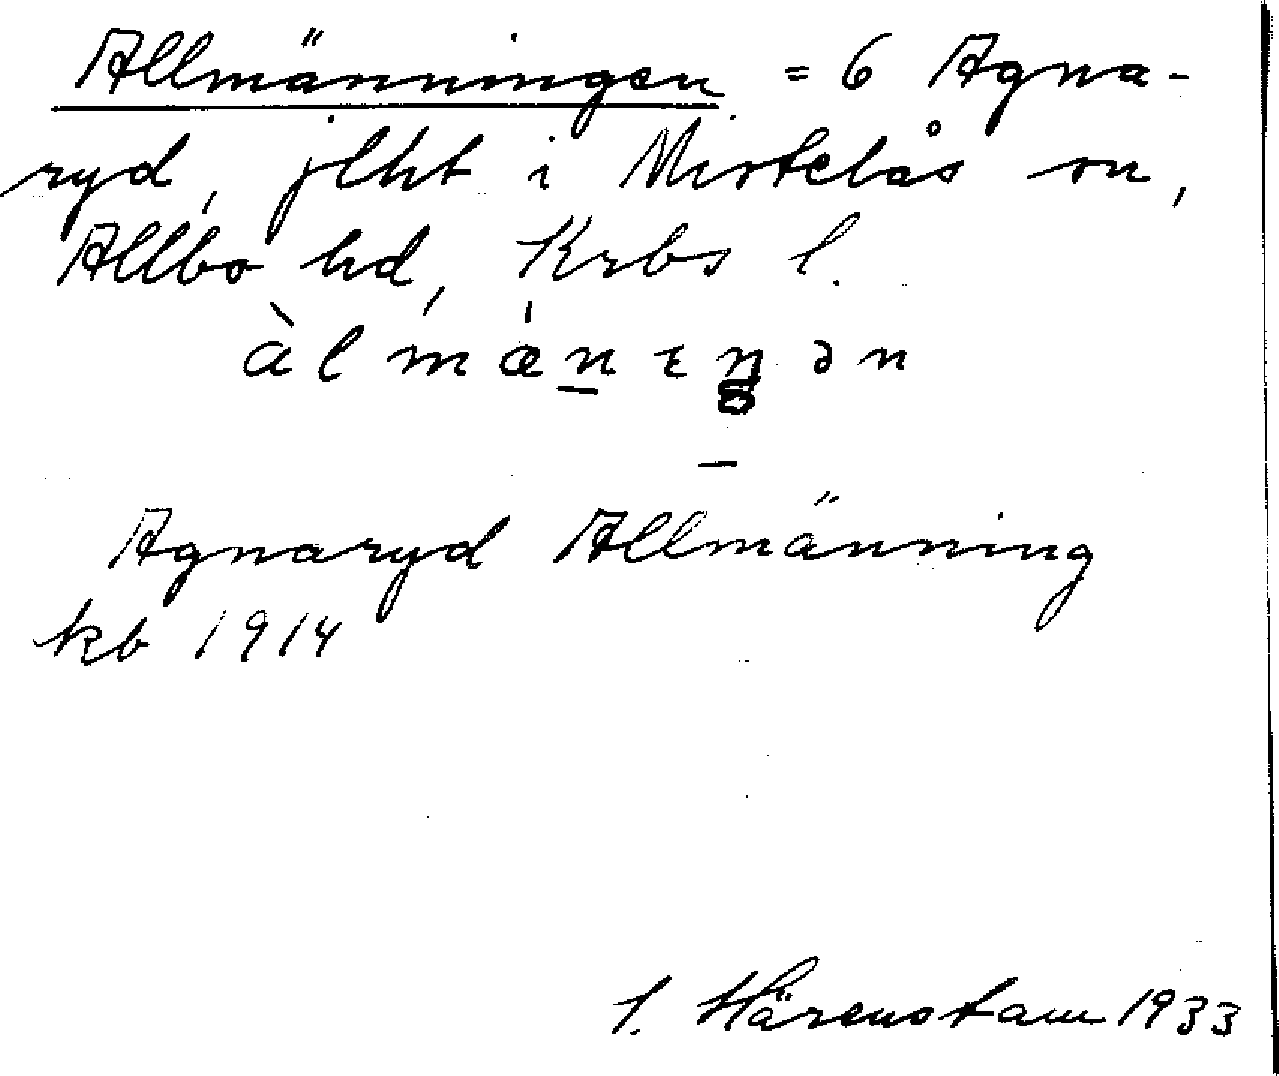 Allmänningen = 6 Agna-
ryd, jlht i Mistelås sn,
Allbo hd, Krbs l.
àlmænɪŋən
Agnaryd Allmänning
kb 1914
I. Härenstam 1933